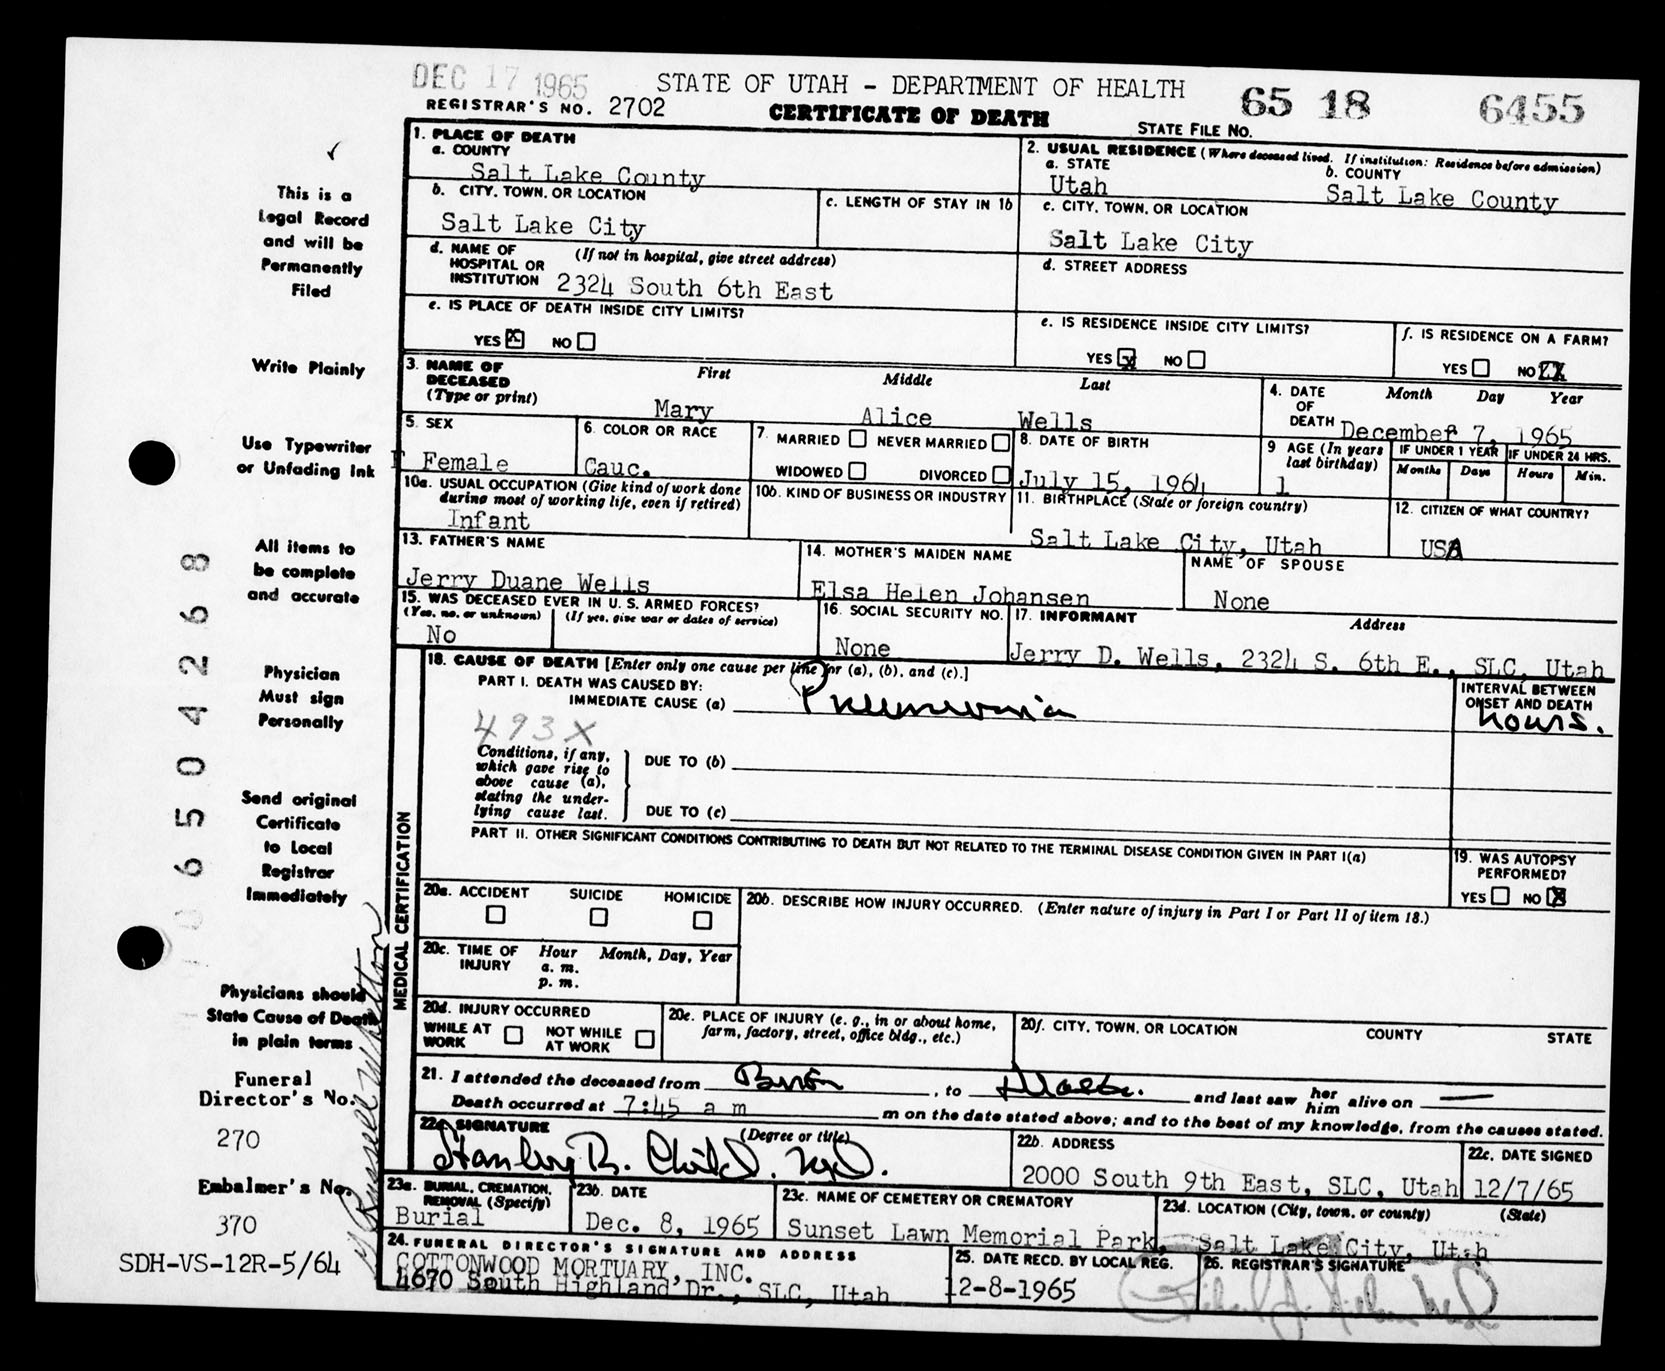 DEC 17 1965
STATE OF UTAH - DEPARTMENT OF HEALTH
65 18 6455
REGISTRAR'S NO. 2702
CERTIFICATE OF DEATH
STATE FILE NO.
This is a
Legal Record
and will be
Permanently
Filed
Write Plainly
Use Typewriter
or Unfading Ink
All items to
be complete
and accurate
Physician
Must sign
Personally
Send original
Certificate
to Local
Registrar
Immediately
Physicians should
State Cause of Death
in plain terms
Funeral
Director's No.
270
Embalmer's No.
370
SDH-VS-12R-5/64
06504268
1. PLACE OF DEATH
a. COUNTY
Salt Lake County
b. CITY, TOWN, OR LOCATION
Salt Lake City
c. LENGTH OF STAY IN 1b
d. NAME OF HOSPITAL OR INSTITUTION (If not in hospital, give street address)
2324 South 6th East
e. IS PLACE OF DEATH INSIDE CITY LIMITS?
YES X NO
2. USUAL RESIDENCE (Where deceased lived. If institution: Residence before admission)
a. STATE
Utah
b. COUNTY
Salt Lake County
c. CITY, TOWN, OR LOCATION
Salt Lake City
d. STREET ADDRESS
e. IS RESIDENCE INSIDE CITY LIMITS?
YES X NO
f. IS RESIDENCE ON A FARM?
YES NO XX
3. NAME OF DECEASED (Type or print)
First Middle Last
Mary Alice Wells
4. DATE OF DEATH Month Day Year
December 7, 1965
5. SEX
Female
6. COLOR OR RACE
Cauc.
7. MARRIED NEVER MARRIED
WIDOWED DIVORCED
8. DATE OF BIRTH
July 15, 1964
9 AGE (In years last birthday)
1
IF UNDER 1 YEAR
Months Days
IF UNDER 24 HRS.
Hours Min.
10a. USUAL OCCUPATION (Give kind of work done during most of working life, even if retired)
Infant
10b. KIND OF BUSINESS OR INDUSTRY
11. BIRTHPLACE (State or foreign country)
Salt Lake City, Utah
12. CITIZEN OF WHAT COUNTRY?
USA
13. FATHER'S NAME
Jerry Duane Wells
14. MOTHER'S MAIDEN NAME
Elsa Helen Johansen
NAME OF SPOUSE
None
15. WAS DECEASED EVER IN U. S. ARMED FORCES?
(Yes, no, or unknown) (If yes, give war or dates of service)
No
16. SOCIAL SECURITY NO.
None
17. INFORMANT Address
Jerry D. Wells, 2324 S. 6th E., SLC, Utah
MEDICAL CERTIFICATION
18. CAUSE OF DEATH [Enter only one cause per line for (a), (b), and (c).]
PART I. DEATH WAS CAUSED BY:
IMMEDIATE CAUSE (a) Pneumonia
INTERVAL BETWEEN
ONSET AND DEATH
hours.
493X
Conditions, if any,
which gave rise to
above cause (a),
stating the under-
lying cause last.
DUE TO (b)
DUE TO (c)
PART II. OTHER SIGNIFICANT CONDITIONS CONTRIBUTING TO DEATH BUT NOT RELATED TO THE TERMINAL DISEASE CONDITION GIVEN IN PART I(a)
19. WAS AUTOPSY PERFORMED?
YES NO X
20a. ACCIDENT SUICIDE HOMICIDE
20b. DESCRIBE HOW INJURY OCCURRED. (Enter nature of injury in Part I or Part II of item 18.)
20c. TIME OF INJURY Hour Month, Day, Year
a. m.
p. m.
20d. INJURY OCCURRED
WHILE AT WORK NOT WHILE AT WORK
20e. PLACE OF INJURY (e. g., in or about home, farm, factory, street, office bldg., etc.)
20f. CITY, TOWN, OR LOCATION COUNTY STATE
21. I attended the deceased from Birth, to Death. and last saw her him alive on —
Death occurred at 7:45 a m m on the date stated above; and to the best of my knowledge, from the causes stated.
22a. SIGNATURE (Degree or title)
Stanley B. Child. M.D.
22b. ADDRESS
2000 South 9th East, SLC, Utah
22c. DATE SIGNED
12/7/65
23a. BURIAL, CREMATION, REMOVAL (Specify)
Burial
23b. DATE
Dec. 8, 1965
23c. NAME OF CEMETERY OR CREMATORY
Sunset Lawn Memorial Park,
23d. LOCATION (City, town, or county) (State)
Salt Lake City, Utah
24. FUNERAL DIRECTOR'S SIGNATURE AND ADDRESS
COTTONWOOD MORTUARY, INC.
4670 South Highland Dr., SLC, Utah
25. DATE RECD. BY LOCAL REG.
12-8-1965
26. REGISTRAR'S SIGNATURE